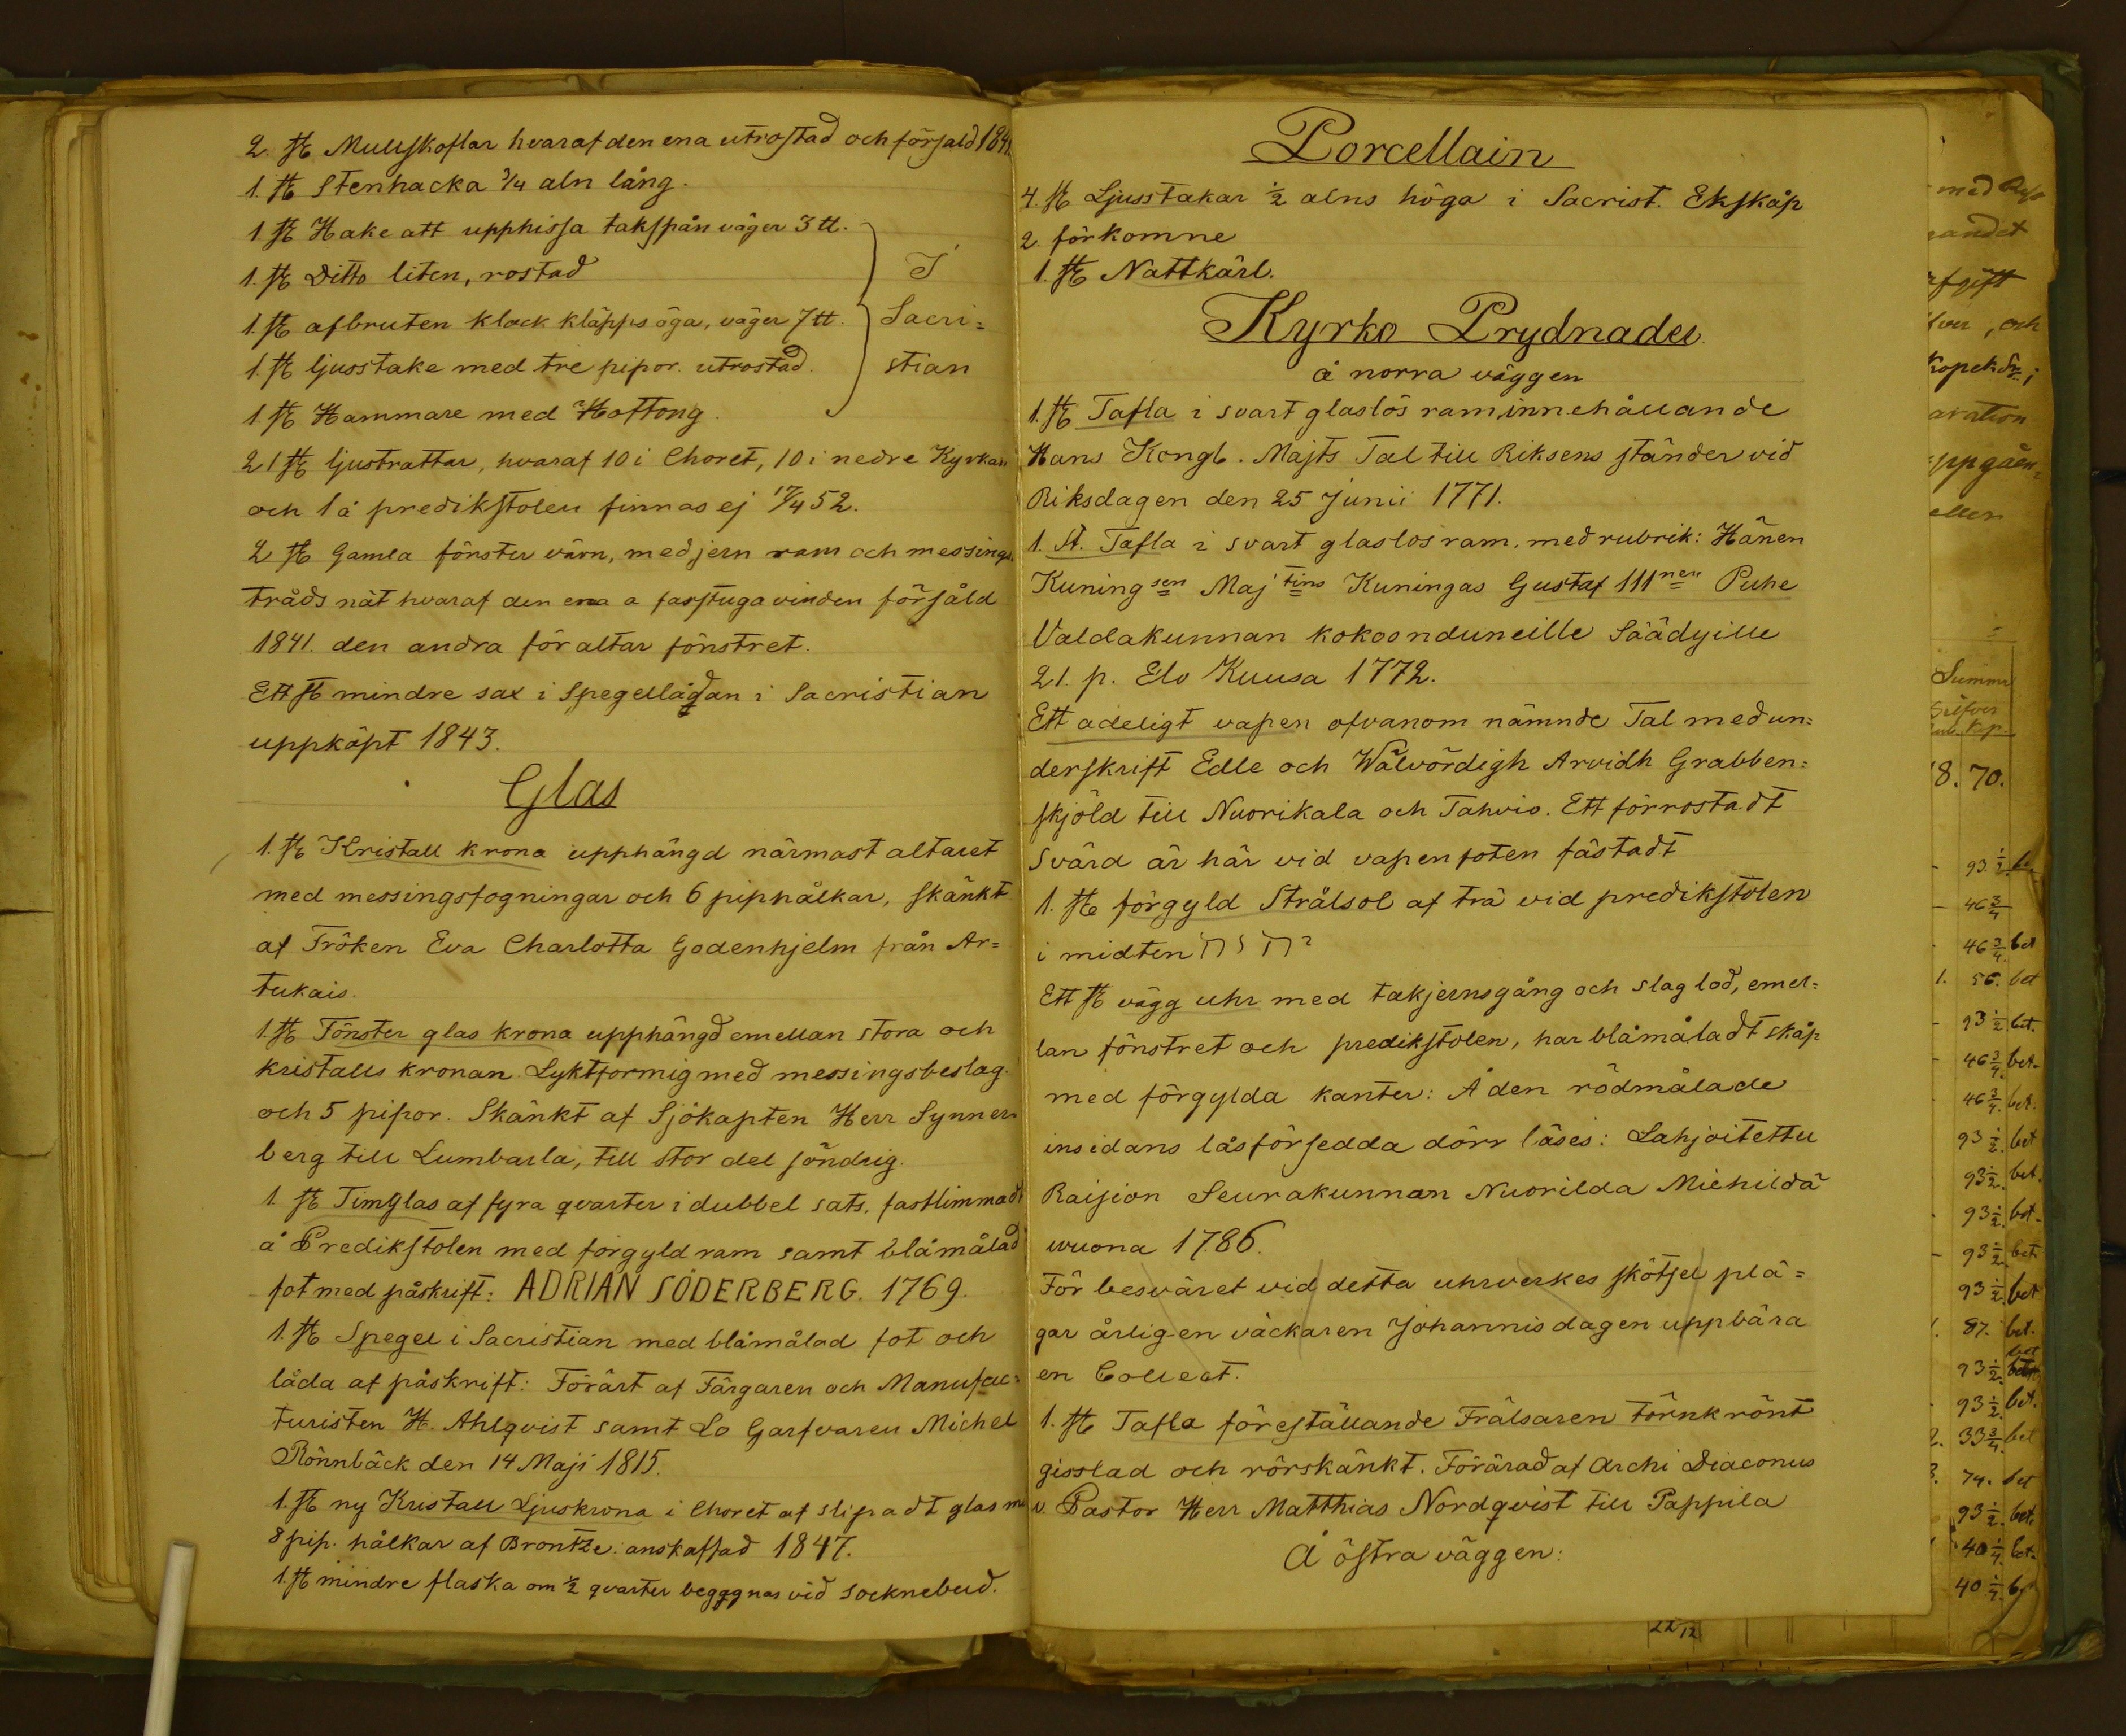 2. st Mullskoflar hvaraf den ena utrostad och försald 1841.
1. st Stenhacka 3/4 aln lång.
1 st Hake att upphissa takspån väger 3 tt.
1. st Ditto liten, rostad
1. st afbruten klock kläpps öga, väger 7 tt.
1 st ljusstake med tre pipor. utrostad.
1 st Hammare med Hoftong.
I Sacri=
stian
21 st ljustrattar, hvaraf 10 i Choret, 10 i nedre Kyrkan
och 1 å predikstolen finnas ej 17/4 52.
2 st Gamla fönster värn, med jern ram och messings
tråds nät hvaraf den ena a farstuga vinden försåld
1841. den andra för altar fönstret.
Ett st mindre sax i Spegellådan i Sacristian
uppköpt 1843.
Glas
1. st Kristall krona upphängd närmast altaret
med messingsfogningar och 6 piphålkar, skänkt
af Fröken Eva Charlotta Godenhjelm från Ar=
tukais.
1. st Fönster glas krona upphängd emellan stora och
kristalls kronan. Lyktformig med messingsbeslag.
och 5 pipor. Skänkt af Sjökapten Herr Synner
berg till Lumbarla, till stor del söndrig.
1. st Timglas af fyra qvarter i dubbel sats, fastlimmadt
å Predikstolen med förgyld ram samt blåmålad
fot med påskrift: ADRIAN SÖDERBERG. 1769.
1. st Spegel i Sacristian med blåmålad fot och
låda af påskrift: Förärt af Färgaren och Manufac=
turisten H. Ahlqvist samt Lo Garfvaren Michel
Rönnbäck den 14 Maji 1815.
1. st ny Kristall Ljuskrona i Choret af slipadt glas m
8 pip. hålkar af Brontze: anskaffad 1847.
1. st mindre flaska om 1/2 qvarter begggnas vid socknebud.
Porcellain
4. st Ljusstakar 1/2 alns höga i Sacrist. Ekskåp
2. förkomne
1. st Nattkärl.
Kyrko Prydnader
å norra väggen
1. st Tafla i svart glaslös ram innehållande
Hans Kongl. Majts Tal till Riksens ständer vid
Riksdagen den 25 Junii 1771.
1. st. Tafla i svart glaslös ram, med rubrik: Hänen
Kuningsen Majtins Kuningas Gustaf IIInen Puhe
Valdakunnan kokoonduneille Säädyille
21. p. Elo Kuusa 1772.
Ett adeligt vapen ofvanom nämnde Tal med un=
derskrift Edle och Wälvördigh Arvidh Grabben=
skjöld till Nuorikala och Tahvio. Ett förrostadt
svärd är här vid vapen foten fästadt
1. st förgyld Strålsol af trä vid predikstolen
i midten יהוה
Ett st vägg uhr med takjernsgång och slag lod, emel=
lan fönstret och predikstolen, har blåmåladt skåp
med förgylda kanter: Å den rödmålade
insidans låsförsedda dörr läses: Lahjoitettu
Raision Seurakunnan Nuorilda Miehildä
wuona 1786.
För besväret vid detta uhrverkes skötsel plä=
gar årligen väckaren Johannis dagen uppbära
en Collect.
1. st Tafla föreställande Frälsaren törnkrönt
gisslad och rörskänkt. Förärad af Archi Diaconus
v. Pastor Herr Matthias Nordqvist till Pappila
Å östra väggen:
andet
afgift
och
kopek Sr;
aration
uppgåen=
eller
Summa
Silfver
Rub. Kop.
8. 70.
93 1/2.
46 3/4
46 3/4. bet
1. 56. bet
93 1/2 bet.
46 3/4. bet.
46 3/4. bet.
93 1/2. bet
93 1/2. bet.
93 1/2. bet.
93 1/2. bet.
93 1/2. bet
87. bet.
93 1/2. bet
93 1/2. bet.
2. 33 3/4. bet
3. 74. bet
93 1/2. bet.
40 1/4. bet.
40 1/4.
22/12